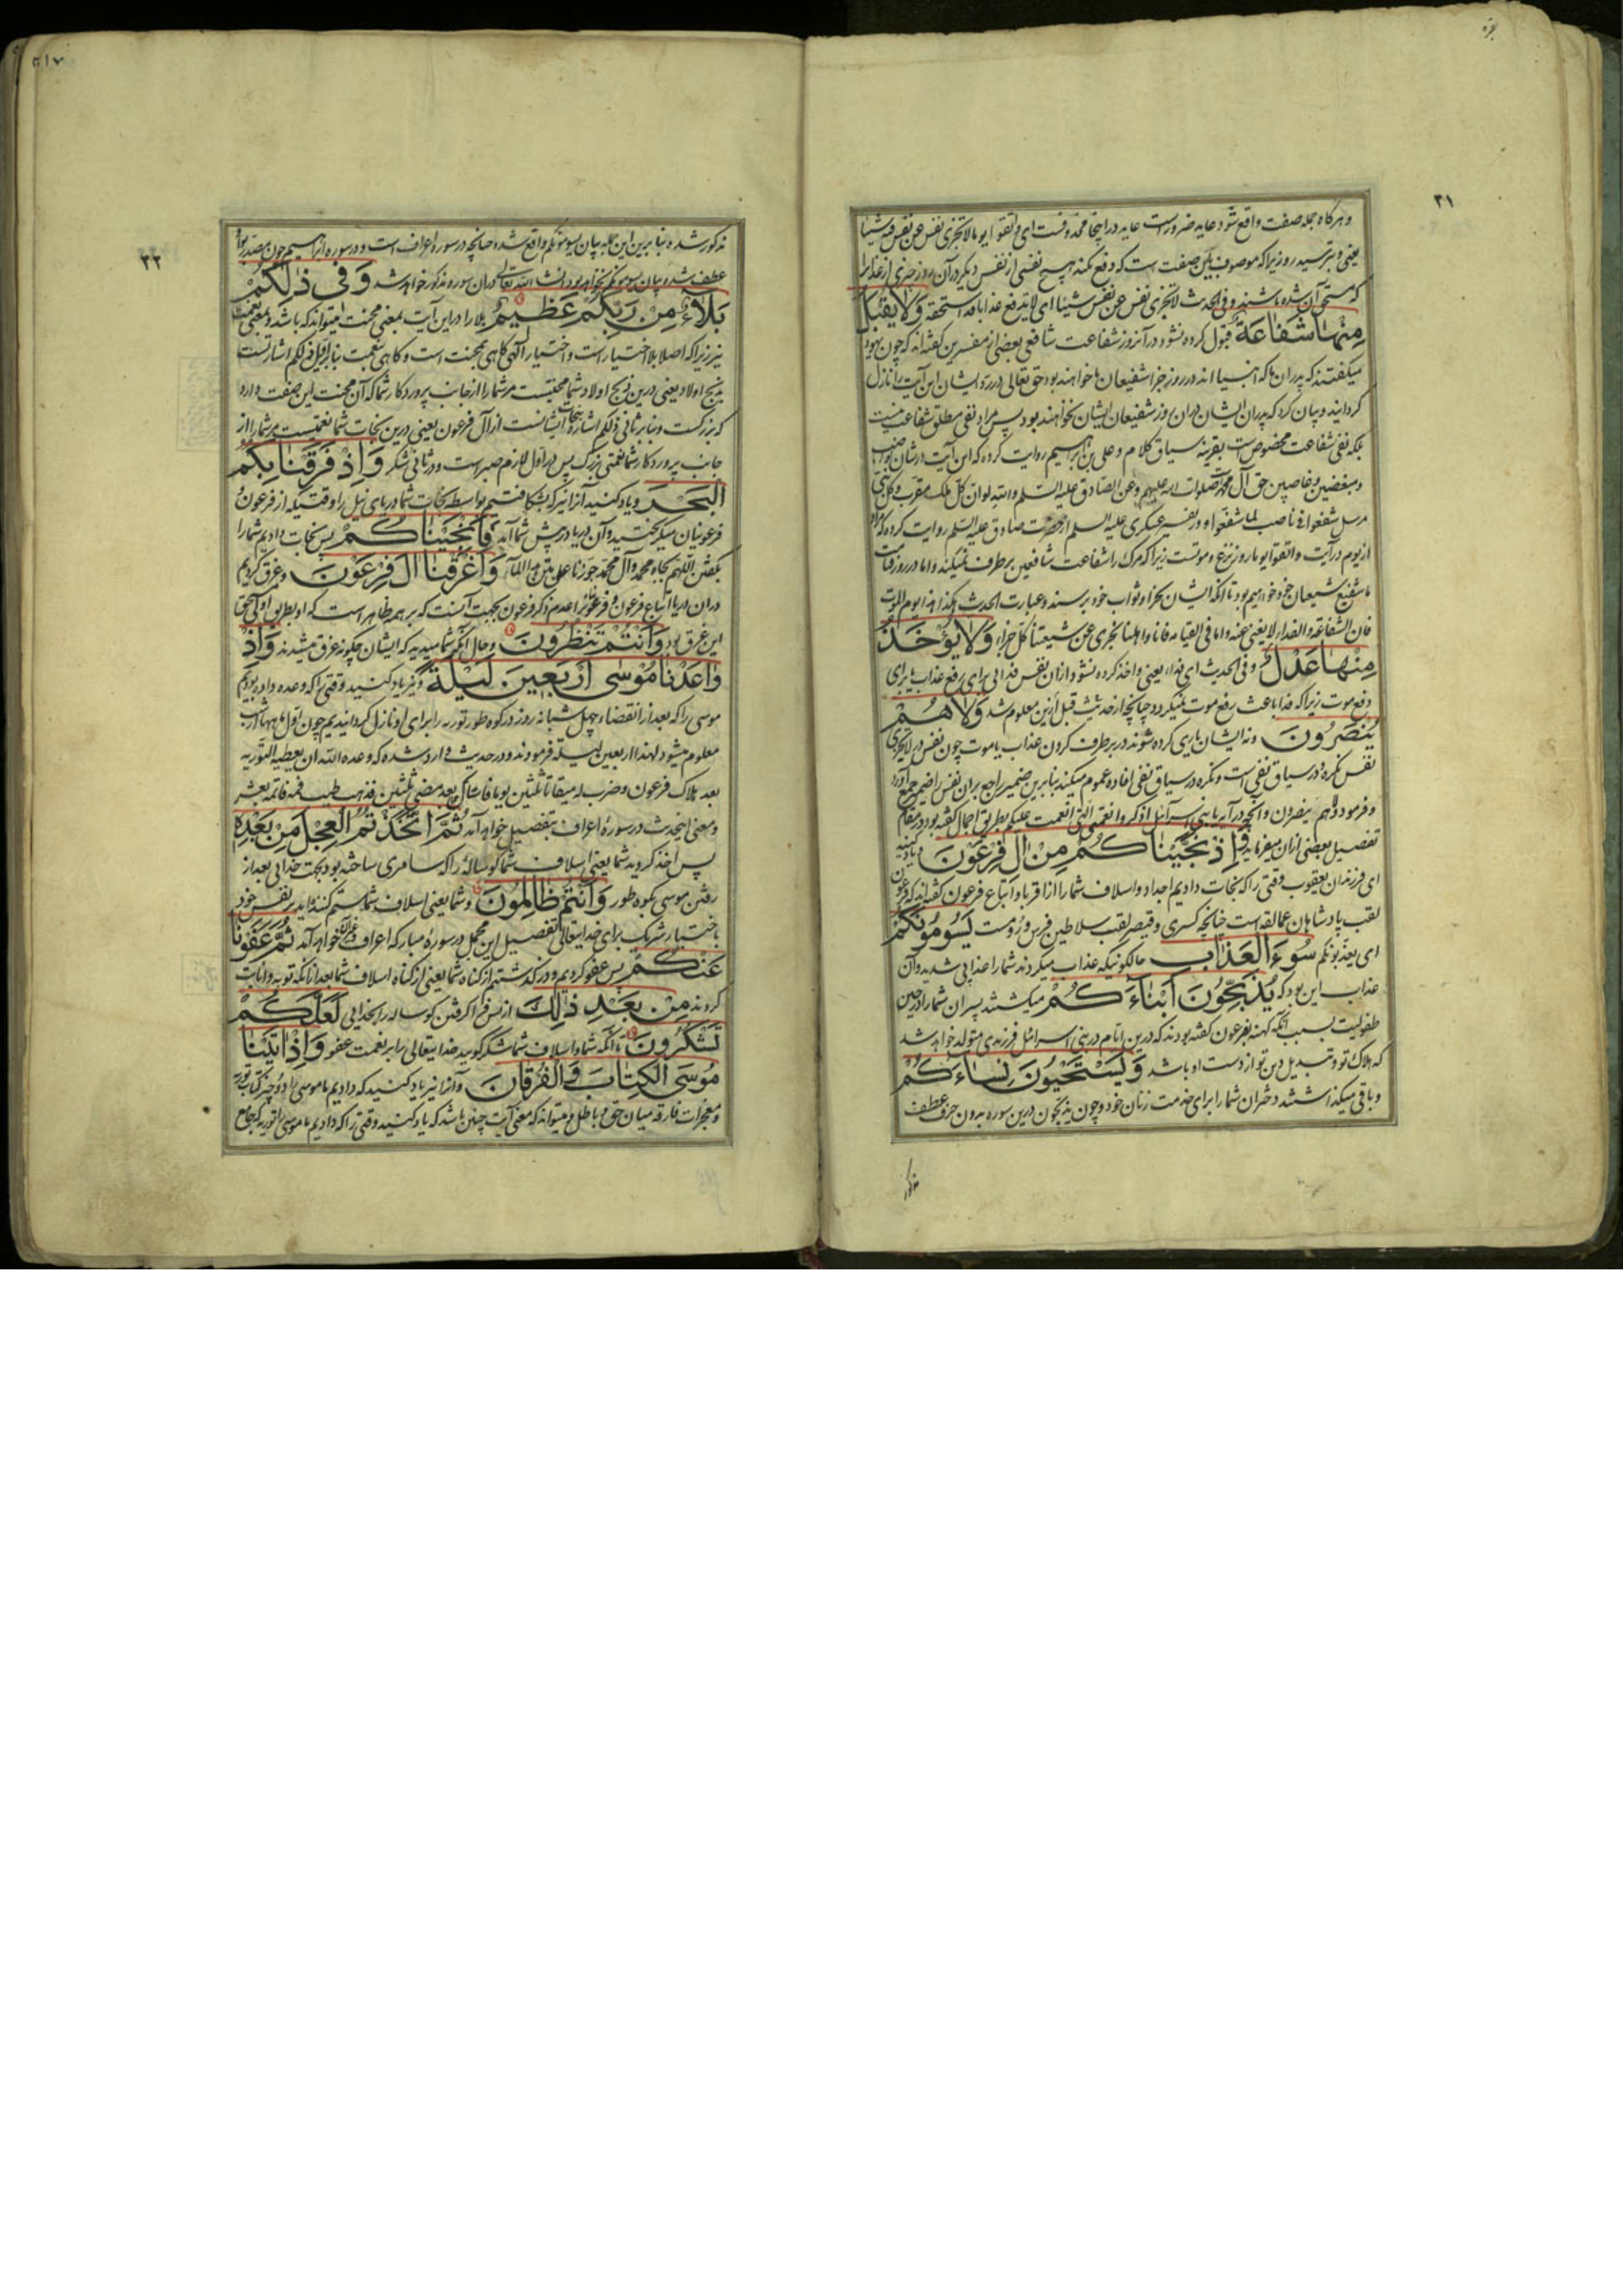 بقره
۳۱
و هرگاه جمله صفت واقع شود عاید ضرور است عاید در اینجا محذوفست ای و اتقوا یوما لا تجزی نفس عن نفس فیه شیئا
یعنی و بترسید روزی را که موصوف باین صفت است که دفع نکند هیچ نفسی از نفس دیگر در آن روز چیزی از عذابی را
که مستحق آن شده باشند و فی الحدیث لا تجزی نفس عن نفس شیئا ای لا تدفع عذابا قد استحقه وَلَا يُقْبَلُ
مِنْهَا شَفَاعَةٌ قبول کرده نشود در آنروز شفاعت شافعی بعضی از مفسرین گفته‌اند که چون یهود
میگفتند که پدران ما که انبیا اند در روز جزا شفیعان ما خواهند بود حق تعالی در رد ایشان این آیت را نازل
گردانید و بیان کرد که پدران ایشان در آن روز شفیعان ایشان نخواهند بود پس مراد نفی مطلق شفاعت نیست
بلکه نفی شفاعت مخصوص است بقرینه سیاق کلام و علی بن ابراهیم روایت کرده که این آیت در شان
و مبغضین و غاصبین حق آل محمد صلوات الله علیهم و عن الصادق علیه السلم والله لو ان کل ملک مقرب و کل نبی
مرسل شفعوا فی ناصب لما شفعوا و در تفسیر عسکری علیه السلم از حضرت صادق علیه السلم روایت کرده که مراد
از یوم در آیت و اتقوا یوما روز نزع و موتست زیرا که مرگ را شفاعت شافعین برطرف نمیکند و اما در روز قیامت
ما شفیع شیعیان خود خواهیم بود تا آنکه ایشان بجزا و ثواب خود برسند و عبارت الحدیث هکذا هذا یوم الموت
فان الشفاعة و الفداء لا یغنی عنه و اما فی القیامة فانا و اهلنا نجزی عن شیعتنا کل جزاء وَلَا يُؤْخَذُ
مِنْهَا عَدْلٌ و فی الحدیث ای فداء یعنی و اخذ کرده نشود از آن نفس فدائی برای رفع عذاب یا برای
دفع موت زیرا که فدا باعث رفع موت نمیگردد چنانچه از حدیث قبل ازین معلوم شد وَلَا هُمْ
يُنْصَرُونَ و نه ایشان یاری کرده شوند در برطرف کردن عذاب یا موت چون نفس در لا تجزی
نفس نکره در سیاق نفی است و نکره در سیاق نفی افاده عموم میکند بنابرین ضمیر راجع بران نفس را ضمیر جمع آورد
و فرمود و لا هم ینصرون و آنچه در آیه یا بنی اسرائیل اذکروا نعمتی التی انعمت علیکم بطریق اجمال گفته بود در مقام
تفصیل بعضی از ان میفرماید وَإِذْ نَجَّيْنَاكُمْ مِنْ آلِ فِرْعَوْنَ و یاد کنید
ای فرزندان یعقوب وقتی را که نجات دادیم اجداد و اسلاف شما را از اقربا و اتباع فرعون گفته‌اند که فرعون
لقب پادشاهان عمالقه است چنانچه کسری و قیصر لقب سلاطین فرس و روم است يَسُومُونَكُمْ
ای یعذبونکم سُوءَ الْعَذَابِ حالکونیکه عذاب میکردند شما را عذابی شدید و آن
عذاب این بود که يُذَبِّحُونَ أَبْنَاءَكُمْ میکشتند پسران شما را در حین
طفولیت بسبب آنکه کهنه بفرعون گفته بودند که درین ایام در بنی اسرائیل فرزندی متولد خواهد شد
که هلاک تو و تبدیل دین تو از دست او باشد وَيَسْتَحْيُونَ نِسَاءَكُمْ
و باقی میگذاشتند دختران شما را برای خدمت زنان خود و چون یذبحون درین سوره بدون حرف عطف
مذکور
۳۲
مذکور شده بنابرین این جمله بیان یسومونکم واقع شده چنانچه در سوره اعراف است و در سوره ابراهیم چون مصدر بواو
عطف شده بیان یسومونکم نخواهد بود انشاء الله تعالی در ان سوره مذکور خواهد شد وَفِي ذَلِكُمْ
بَلَاءٌ مِنْ رَبِّكُمْ عَظِيمٌ بلا را در این آیت بمعنی محنت میتواند که باشد و بمعنی نعمت
نیز زیرا که اصل بلا اختیار است و اختیار الهی گاهی بمحنت است و گاهی بنعمت بنابر اول ذلکم اشارتست
بذبح اولاد یعنی درین ذبح اولاد شما محنتیست مر شما را از جانب پروردگار شما که آن محنت این صفت دارد
که بزرگست و بنابر ثانی ذلکم اشاره بنجات ایشانست از آل فرعون یعنی درین نجات شما نعمتیست مر شما را از
جانب پروردگار شما نعمتی بزرگ پس در اول لازم صبر است و در ثانی شکر وَإِذْ فَرَقْنَا بِكُمُ
الْبَحْرَ و یاد کنید آنرا نیز که بشکافتیم بواسطه نجات شما دریای نیل را وقتیکه از فرعون و
فرعونیان میگریختید و آن دریا در پیش شما آمد فَأَنْجَيْنَاكُمْ پس نجات دادیم شما را
بگفتن اللهم بجاه محمد و آل محمد جوزنا علی متن هذا الماء وَأَغْرَقْنَا آلَ فِرْعَوْنَ و غرق کردیم
در ان دریا اتباع فرعون و فرعون را عدم ذکر فرعون بجهت آنست که بر همه ظاهر است که او بطریق اولی بحق
این غرق بود وَأَنْتُمْ تَنْظُرُونَ و حال آنکه شما میدیدید که ایشان چگونه غرق میشدند وَإِذْ
وَاعَدْنَا مُوسَى أَرْبَعِينَ لَيْلَةً و نیز یاد کنید وقتی را که وعده داده بودیم
موسی را که بعد از انقضاء چهل شبانه روز در کوه طور توریه را برای او نازل گردانیدیم چون اول ماهها از شب
معلوم میشود لهذا اربعین لیلة فرمودند و در حدیث وارد شده که وعده الله ان یعطیه التوریه
بعد هلاک فرعون و ضرب له میقاتا ثلثین یوما فاستاک بعد مضی ثلثین فذهب طیب فمه فاتمه بعشر
و معنی اینحدیث در سوره اعراف بتفصیل خواهد آمد ثُمَّ اتَّخَذْتُمُ الْعِجْلَ مِنْ بَعْدِهِ
پس اخذ کردید شما یعنی اسلاف شما گوساله را که سامری ساخته بود بجهت خدایی بعد از
رفتن موسی بکوه طور وَأَنْتُمْ ظَالِمُونَ و شما یعنی اسلاف شما ستم کننده‌اید بر نفس خود
باختیار شریک برای خدایتعالی تفصیل این مجمل در سوره مبارکه اعراف خواهد آمد ثُمَّ عَفَوْنَا
عَنْكُمْ پس عفو کردیم و درگذشتیم از گناه شما یعنی از گناه اسلاف شما بعد از آنکه توبه و انابت
کردند مِنْ بَعْدِ ذَلِكَ از پس فرا گرفتن گوساله را بخدایی لَعَلَّكُمْ
تَشْكُرُونَ تا آنکه شما و اسلاف شما شکر گویید خدایتعالی را بر نعمت عفو وَإِذْ آتَيْنَا
مُوسَى الْكِتَابَ وَالْفُرْقَانَ و آنرا نیز یاد کنید که دادیم ما موسی را دو چیز کتاب توریه
و معجزات فارقه میان حق و باطل و میتواند که معنی آیت چنین باشد که یاد کنید وقتی را که دادیم ما موسی را توریه که جامع